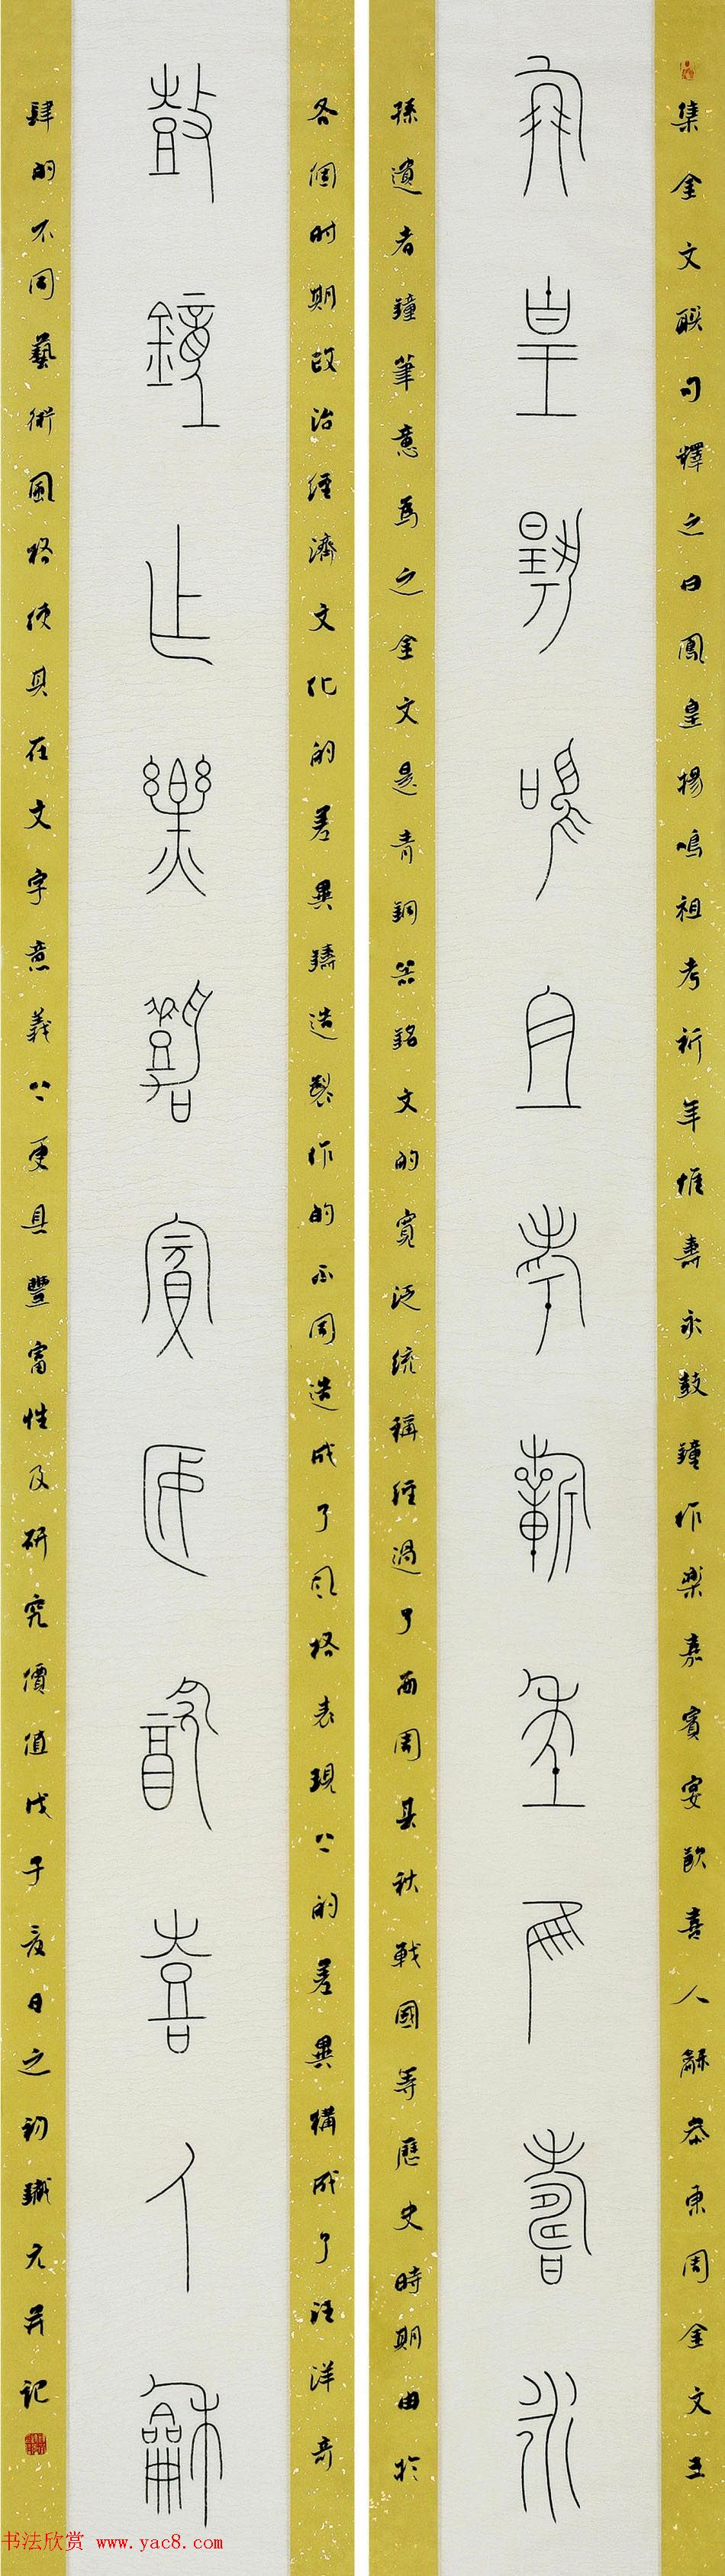 集金文聯句釋之曰鳳皇揚鳴祖考祈年惟壽永鼓鐘作樂嘉賓宴歆喜人龢恭東周金文王
鳳皇揚鳴祖考祈年惟壽永
孫遺者鐘筆意爲之金文是青銅器銘文的寬泛统稱經過了西周具秋戰國等歷史時期由於
各個时期政治經濟文化的差異鑄造製作的不同造成了风格表现上的差異構成了汪洋奇
鼓鐘作樂嘉賓宴歆喜人龢
肆的不同藝術風格使其在文字意義上更具豐富性及研究價值戊子夏日之初鐵亢并记
书法欣赏 www.yac8.com